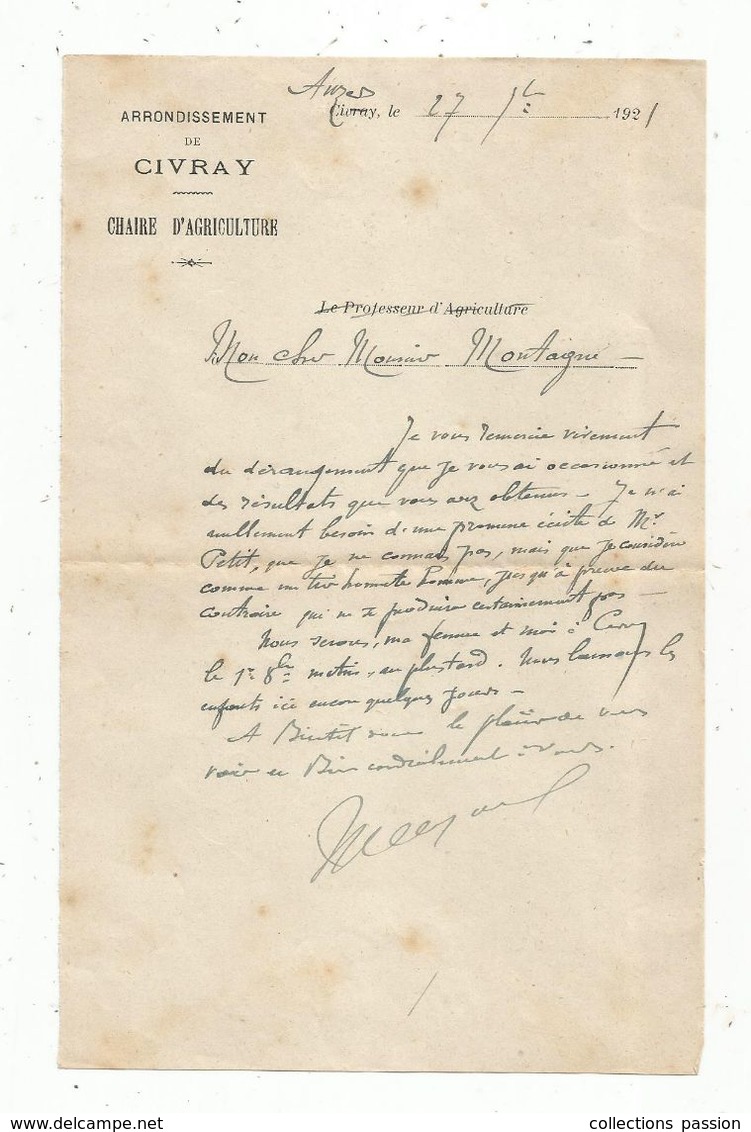 ARRONDISSEMENT
DE
CIVRAY
CHAIRE D'AGRICULTURE
Civray, le 27 1921
Le Professeur d'Agriculture
Mon cher Monsieur Montaigne
Je vous remercie vivement
du dérangement que je vous ai occasionné et
des résultats que vous avez obtenus - Je n'ai
nullement besoin d'une promesse écrite de Mr
Petit, que je ne connais pas, mais que je considère
comme un très honnête homme, jusqu'à preuve du
contraire qui ne se produira certainement pas -
Nous serons, ma femme et moi à Civray
le 1er 8bre matin, au plus tard. Nous laissons les
enfants ici encore quelques jours -
A Bientôt donc le plaisir de vous
voir et Bien cordialement à vous.
collections passion